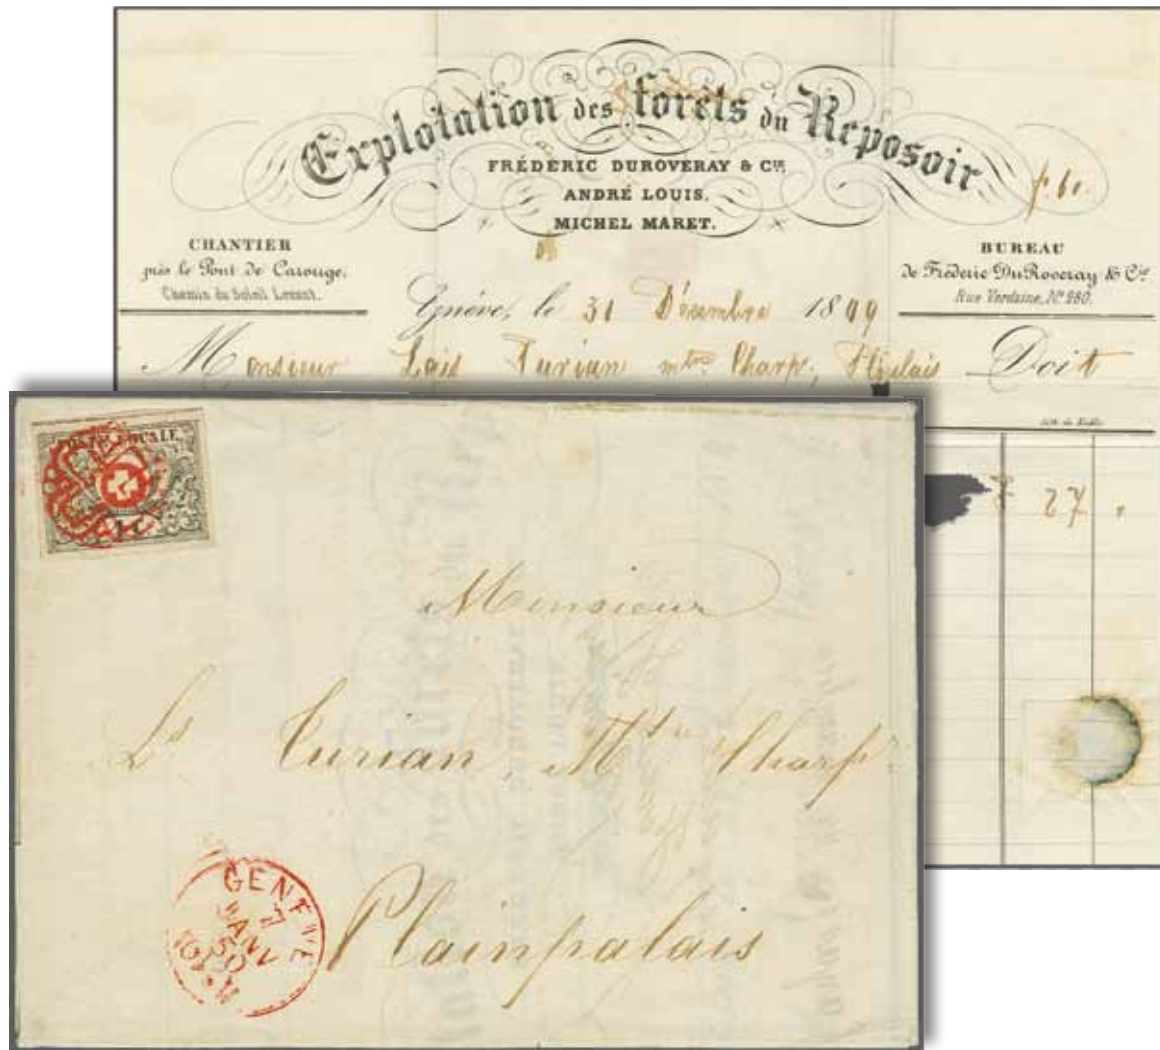 Explotation des forêts du Reposoir
FRÉDERIC DUROVERAY & CIE
ANDRÉ LOUIS.
MICHEL MARET.
f. 60.
CHANTIER
près le Pont de Carouge,
Chemin du Soleil Levant.
BUREAU
de Fréderic DuRoveray & Cie
Rue Verdaine, No 280.
Genève, le 31 Décembre 1849
Monsieur Turian mtre Charp. Doit
F 27
POSTE LOCALE
Monsieur
Ls Turian, Mtre Charp.
Plainpalais
GENÈVE
7
JANV
50